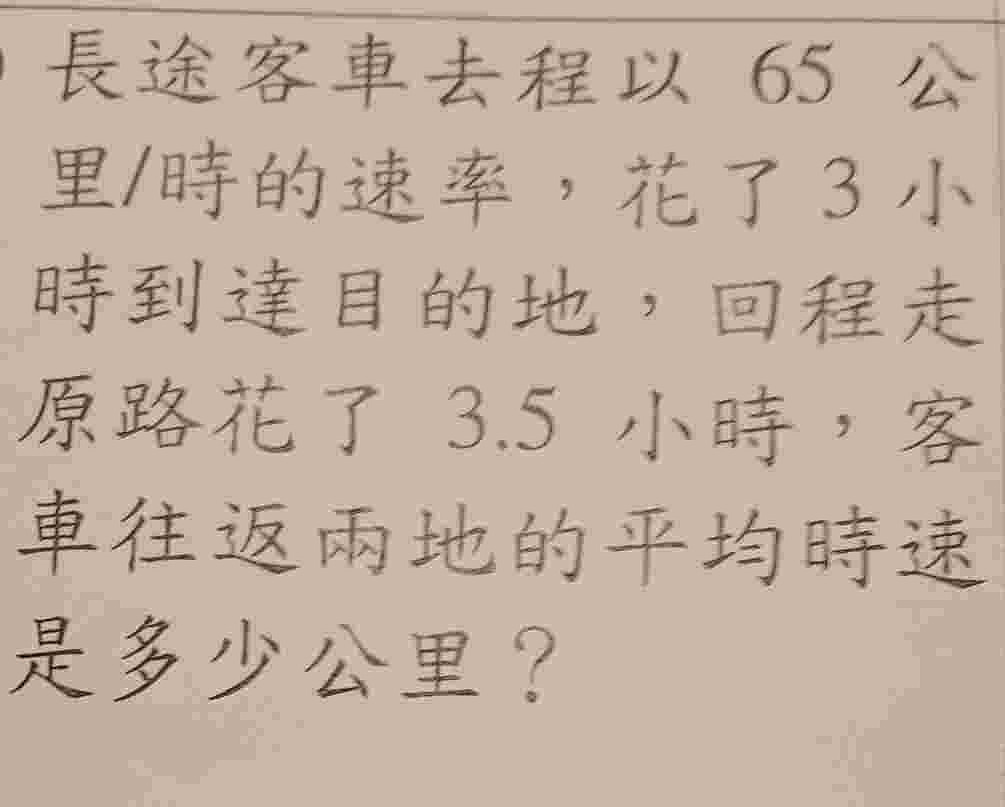 長途客車去程以 65 公
里/時的速率，花了 3 小
時到達目的地，回程走
原路花了 3.5 小時，客
車往返兩地的平均時速
是多少公里？